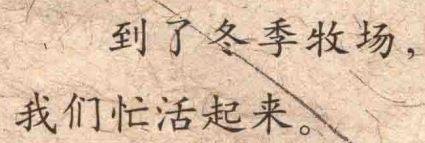 到了冬季牧场，
我们忙活起来。